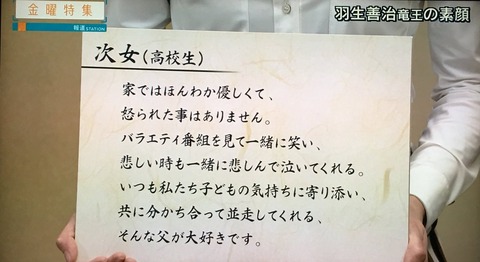 金曜特集
報道STATION
羽生善治竜王の素顔
次女(高校生)
家ではほんわか優しくて、
怒られた事はありません。
バラエティ番組を見て一緒に笑い、
悲しい時も一緒に悲しんで泣いてくれる。
いつも私たち子どもの気持ちに寄り添い、
共に分かち合って並走してくれる、
そんな父が大好きです。